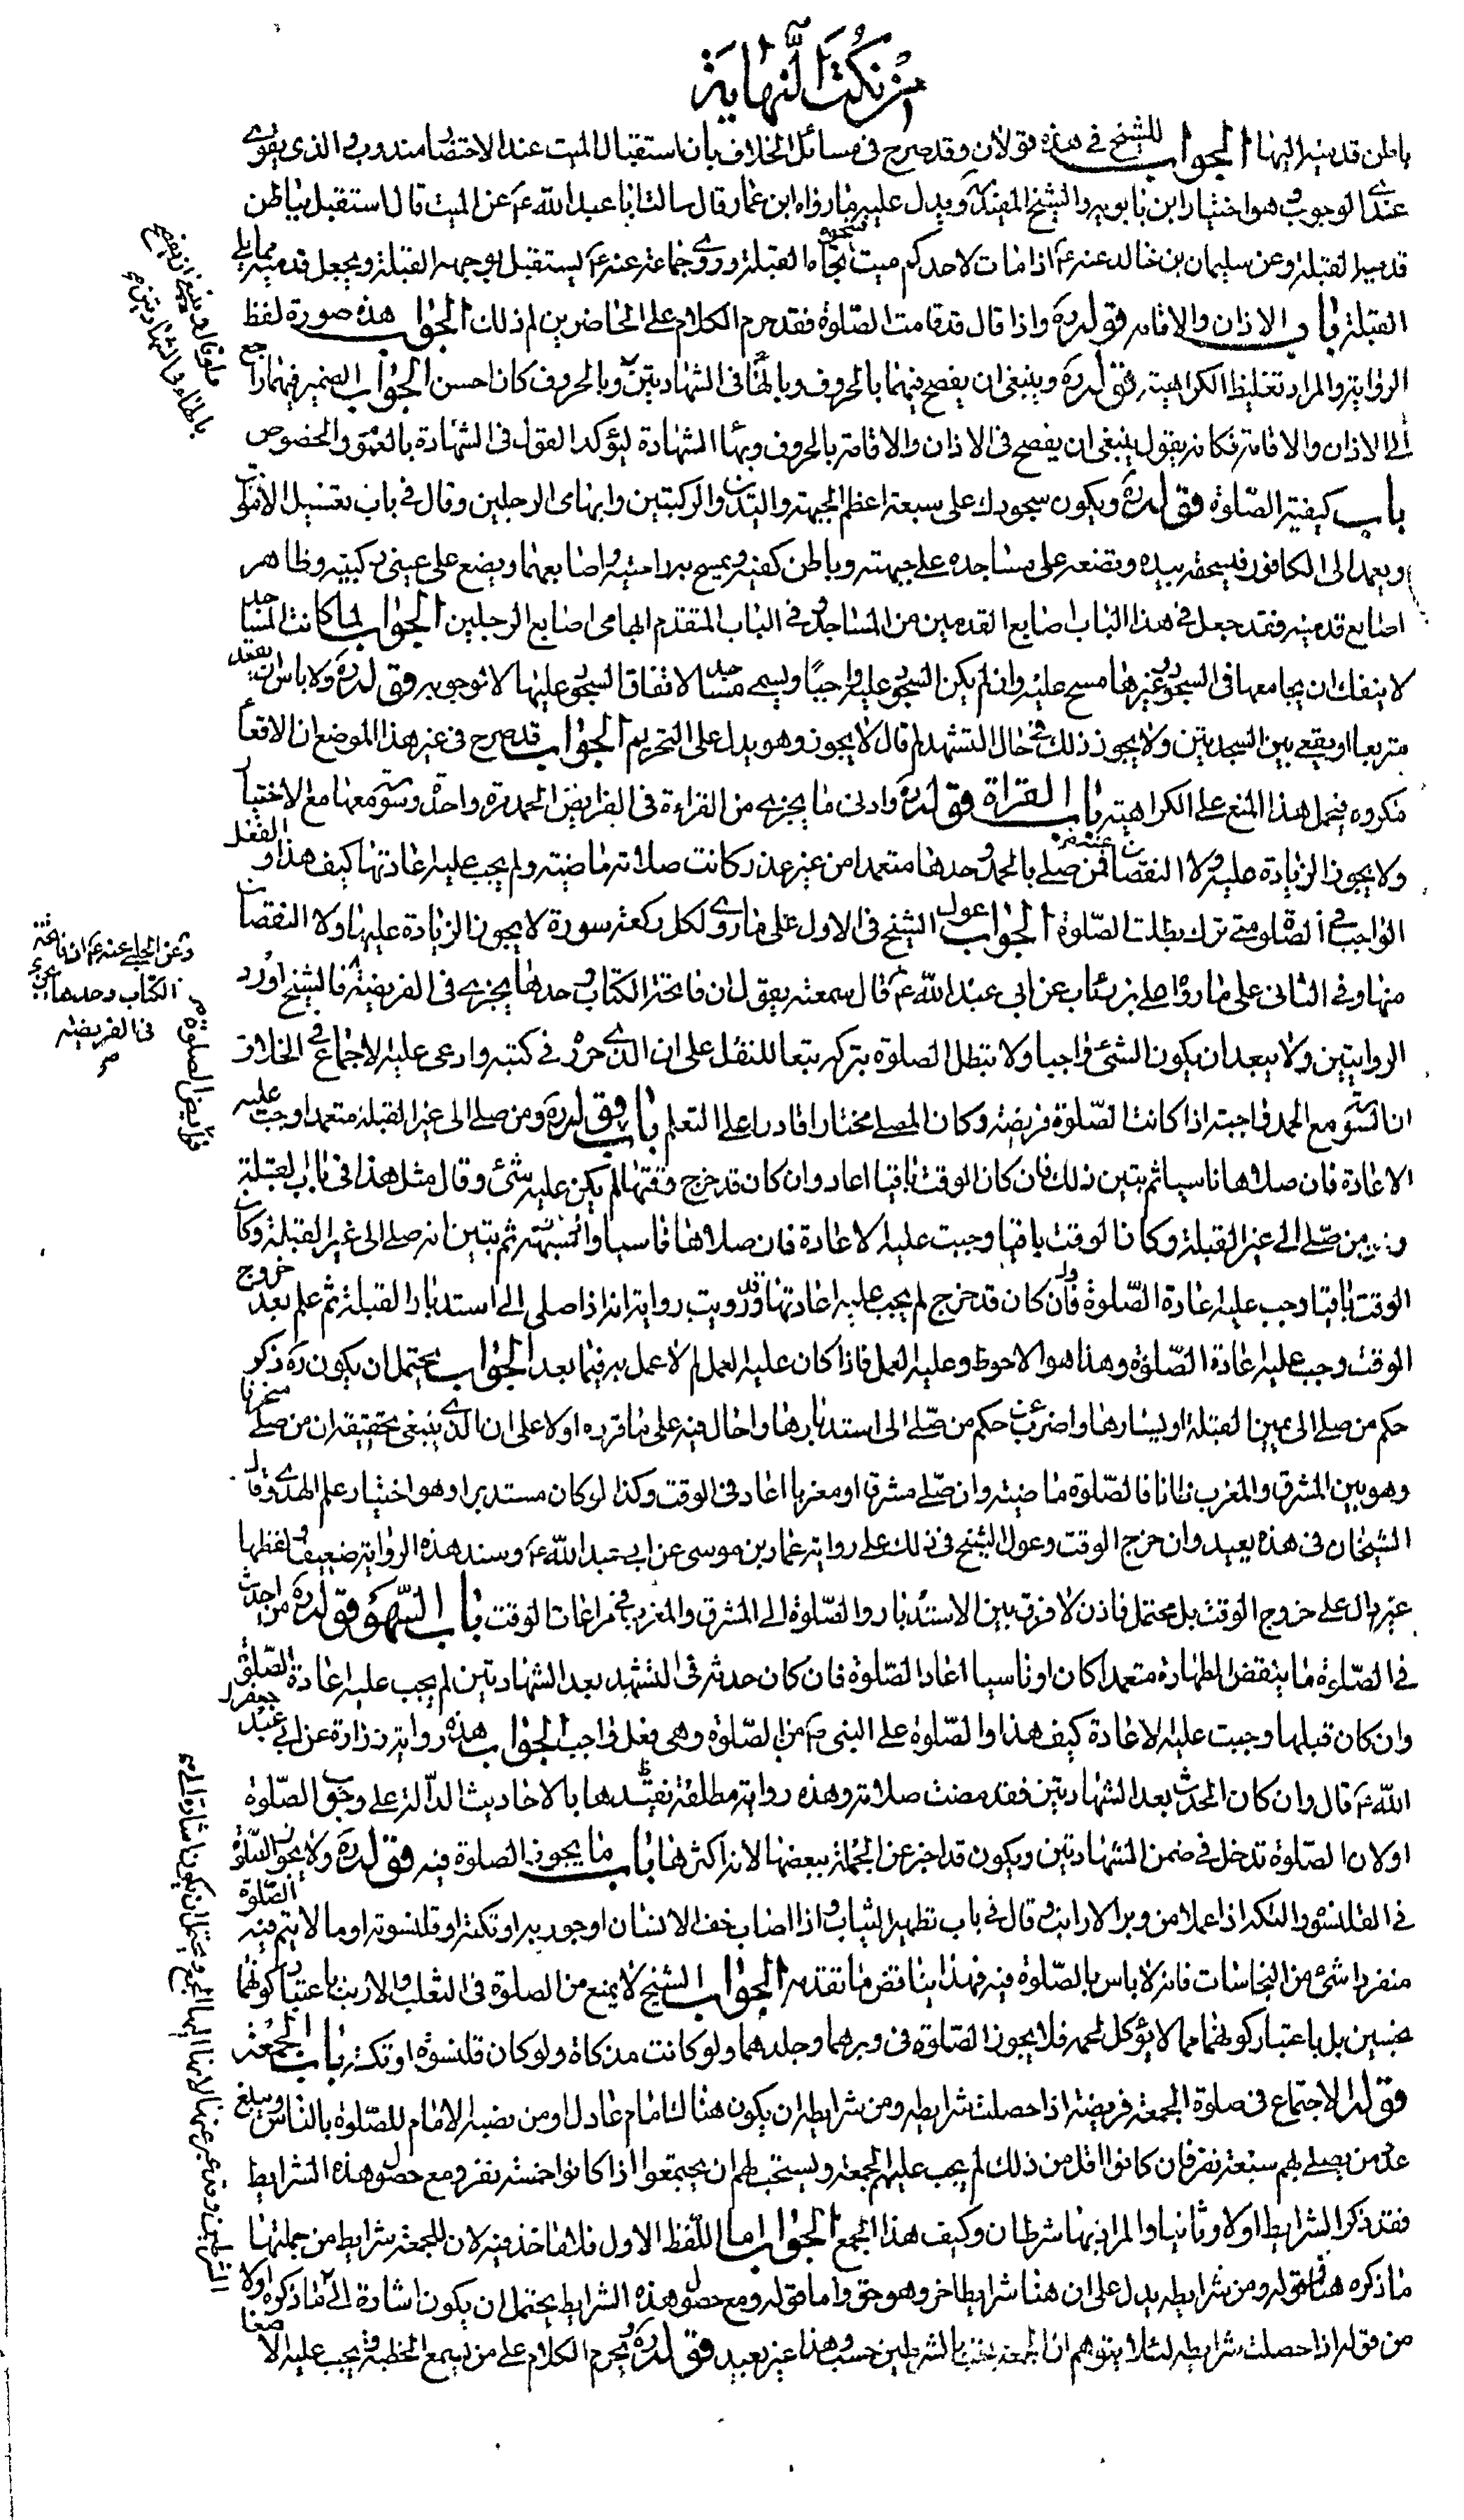 من نكت النهاية
باطن قدميه اليها الجواب للشيخ في هذه قولان وقد صرح في مسائل الخلاف بان استقبال الميت عند الاحتضار مندوب والذى يقوى
عندى الوجوب وهو اختيار ابن بابويه والشيخ المفيد ره ويدل عليه ما رواه ابن عمار قال سالت ابا عبد الله ع عن الميت قال استقبل بباطن
قدميه القبلة وعن سليمان بن خالد عنه ع اذا مات لاحدكم ميت فسجوه تجاه القبلة وروى جماعة عنه ع يستقبل بوجهه القبلة ويجعل قدميه مما يلى
القبلة باب الاذان والاقامه قوله ره واذا قال قد قامت الصلوة فقد حرم الكلام على الحاضرين لم ذلك الجواب هذه صورة لفظ
الرواية والمراد تغليظ الكراهية قوله ره وينبغى ان يفصح فيهما بالحروف وبالهاء في الشهادتين وبالحروف كان احسن الجواب الضمير فيهما راجع
الى الاذان والاقامة فكانه يقول ينبغى ان يفصح في الاذان والاقامة بالحروف وبها الشهادة ليؤكد القول في الشهادة بالعموم والخصوص
باب كيفية الصلوة قوله ره ويكون سجودك على سبعة اعظم الجبهة واليدين والركبتين وابهامى الرجلين وقال في باب تغسيل الاموات
ويعمد الى الكافور فليسحقه بيده وتضعه على مساجده على جبهته وباطن كفيه ويمسح به راحتيه واصابعهما ويضع على عينى ركبتيه وظاهر
اصابع قدميه فقد جعل في هذا الباب اصابع القدمين من المساجد وفي الباب المتقدم ابهامى اصابع الرجلين الجواب لما كانت المساجد
لا ينفك ان يجامعها في السجود غيرها مسح عليه وان لم يكن السجود عليه واجبا ويسمى مساجد لاتفاق السجود عليها لا لوجوبه قوله ره ولا باس ان يقعد
متربعا او يقعى بين السجدتين ولا يجوز ذلك في حال التشهد لم قال لا يجوز وهو يدل على التحريم الجواب قد صرح في غير هذا الموضع ان الاقعاء
مكروه فيحمل هذا المنع على الكراهية باب القراة قوله ره وادنى ما يجزى من القراءة في الفرايض الحمد مرة واحدة وسورة معها مع الاختيار
ولا يجوز الزيادة عليه ولا النقصان عنه فمن صلى بالحمد وحدها متعمدا من غير عذر كانت صلاته ماضية ولم يجب عليه اعادتها كيف هذا والفعل
الواجب في الصلوة متى ترك بطلت الصلوة الجواب عول الشيخ في الاول على ما روى لكل ركعة سورة لا يجوز الزيادة عليها ولا النقصان
منها وفي الثانى على ما رواه على بن رئاب عن ابى عبد الله ع قال سمعته يقول ان فاتحة الكتاب وحدها يجزى في الفريضة فالشيخ اورد
الروايتين ولا يبعد ان يكون الشئ واجبا ولا تبطل الصلوة بتركه تبعا للنقل على ان الذى حرره في كتبه وادعى عليه الاجماع في الخلاف
ان السورة مع الحمد واجبة اذا كانت الصلوة فريضة وكان المصلى مختارا قادرا على التعلم باب قوله ره ومن صلى الى غير القبلة متعمدا وجبت عليه
الاعادة فان صلاها ناسيا ثم تبين ذلك فان كان الوقت باقيا اعاد وان كان قد خرج وقتها لم يكن عليه شئ وقال مثل هذا في باب القبلة
ومن صلى الى غير القبلة وكان الوقت باقيا وجبت عليه الاعادة فان صلاها ناسيا او لشبهة ثم تبين انه صلى الى غير القبلة وكان
الوقت باقيا وجب عليه اعادة الصلوة وان كان قد خرج لم يجب عليه اعادتها وقد رويت رواية انه اذا صلى الى استدبار القبلة ثم علم بعد خروج
الوقت وجب عليه اعادة الصلوة وهذا هو الاحوط وعليه العمل فاذا كان عليه العمل لم لا عمل به فيما بعد الجواب يحتمل ان يكون ره ذكر
حكم من صلى الى يمين القبلة او يسارها واضرب عن حكم من صلى الى استدبارها واحال فيه على ما قرره اولا على ان الذى ينبغى تحقيقه ان من صلى منحرفا
وهو بين المشرق والمغرب ظانا فالصلوة ماضية وان صلى مشرقا او مغربا اعاد في الوقت وكذا لو كان مستدبرا وهو اختيار علم الهدى وقال
الشيخان في هذه يعيد وان خرج الوقت وعول الشيخ في ذلك على رواية عمار بن موسى عن ابى عبد الله ع وسند هذه الرواية ضعيف ولفظها
غير دال على خروج الوقت بل محتمل فاذن لا فرق بين الاستدبار والصلوة الى المشرق والمغرب في مراعات الوقت باب السهو قوله ره من احدث
في الصلوة ما ينقض الطهارة متعمدا كان او ناسيا اعاد الصلوة فان كان حدثه في التشهد بعد الشهادتين لم يجب عليه اعادة الصلوة
وان كان قبلها وجبت عليه الاعادة كيف هذا والصلوة على النبى ص من الصلوة وهى فعل واجب الجواب هذه رواية زرارة عن ابى جعفر او عبد
الله ع قال وان كان الحدث بعد الشهادتين فقد مضت صلاته وهذه رواية مطلقة نقيدها بالاحاديث الدالة على وجوب الصلوة
او لان الصلوة تدخل في ضمن الشهادتين ويكون قد اخبر عن الجملة ببعضها لانه اكثرها باب ما يجوز الصلوة فيه قوله ره ولا يجوز الصلوة
في القلنسوة والتكة اذا عملا من وبر الارانب وقال في باب تطهير الثياب واذا اصاب خف الانسان او جوربه او تكته او قلنسوته او ما لا يتم فيه الصلوة
منفردا شئ من النجاسات فانه لا باس بالصلوة فيه فهذا يناقض ما تقدم الجواب الشيخ لا يمنع من الصلوة في الثعلب والارنب باعتبار كونهما
نجسين بل باعتبار كونهما مما لا يؤكل لحمه فلا يجوز الصلوة في وبرهما وجلدهما ولو كانت مذكاة ولو كان قلنسوة او تكة باب الجمعة
قوله الاجتماع في صلوة الجمعة فريضة اذا حصلت شرايطه ومن شرايطه ان يكون هناك امام عادل او من نصبه الامام للصلوة بالناس ويبلغ
عدد من يصلى بهم سبعة نفر فان كانوا اقل من ذلك لم يجب عليهم الجمعة ويستحب لهم ان يجتمعوا اذا كانوا خمسة نفر ومع حصول هذه الشرايط
فقد ذكر الشرايط اولا وثانيا والمراد بها شرطان وكيف هذا الجمع الجواب اما اللفظ الاول فلا مؤاخذة فيه لان للجمعة شرايط من جملتها
ما ذكره هنا فقوله ومن شرايطه يدل على ان هنا شرايط اخر وهو حق واما قوله ومع حصول هذه الشرايط يحتمل ان يكون اشارة الى ما ذكره اولا
من قوله اذا حصلت شرايطه لئلا يتوهم ان الجمعة تجب بالشرطين حسب وهذا غير بعيد قوله ره ويحرم الكلام على من يسمع الخطبة ويجب عليه الاصغا
فلو قال وينبغى ان يفصح
بالهاء في الشهادتين
وعن الحلبى عنه ع ان فاتحة
الكتاب وحدها تجزى
في الفريضة
فرايض الصلوة
الشرطين وقد عبر عنهما لانهما اليها الجمع ويحتمل ان يكون اشارة الى